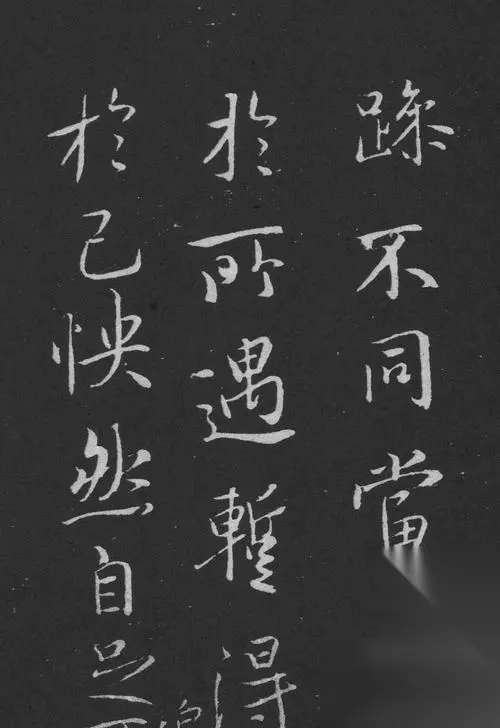 躁不同當
於所遇蹔得
於己怏然自足